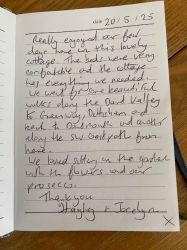 date 20/5/25
Really enjoyed our few
days here in this lovely
cottage. The beds were very
comfortable and the cottage
has everything we needed.
We went for some beautiful
walks along the Dart Valley
to Greenway, Dittisham and
back to Dartmouth and another
along the SW coast path from
here.
We loved sitting in the garden
with the flowers and our
prosecco.
Thank you
Hayley + Jocelyn
x